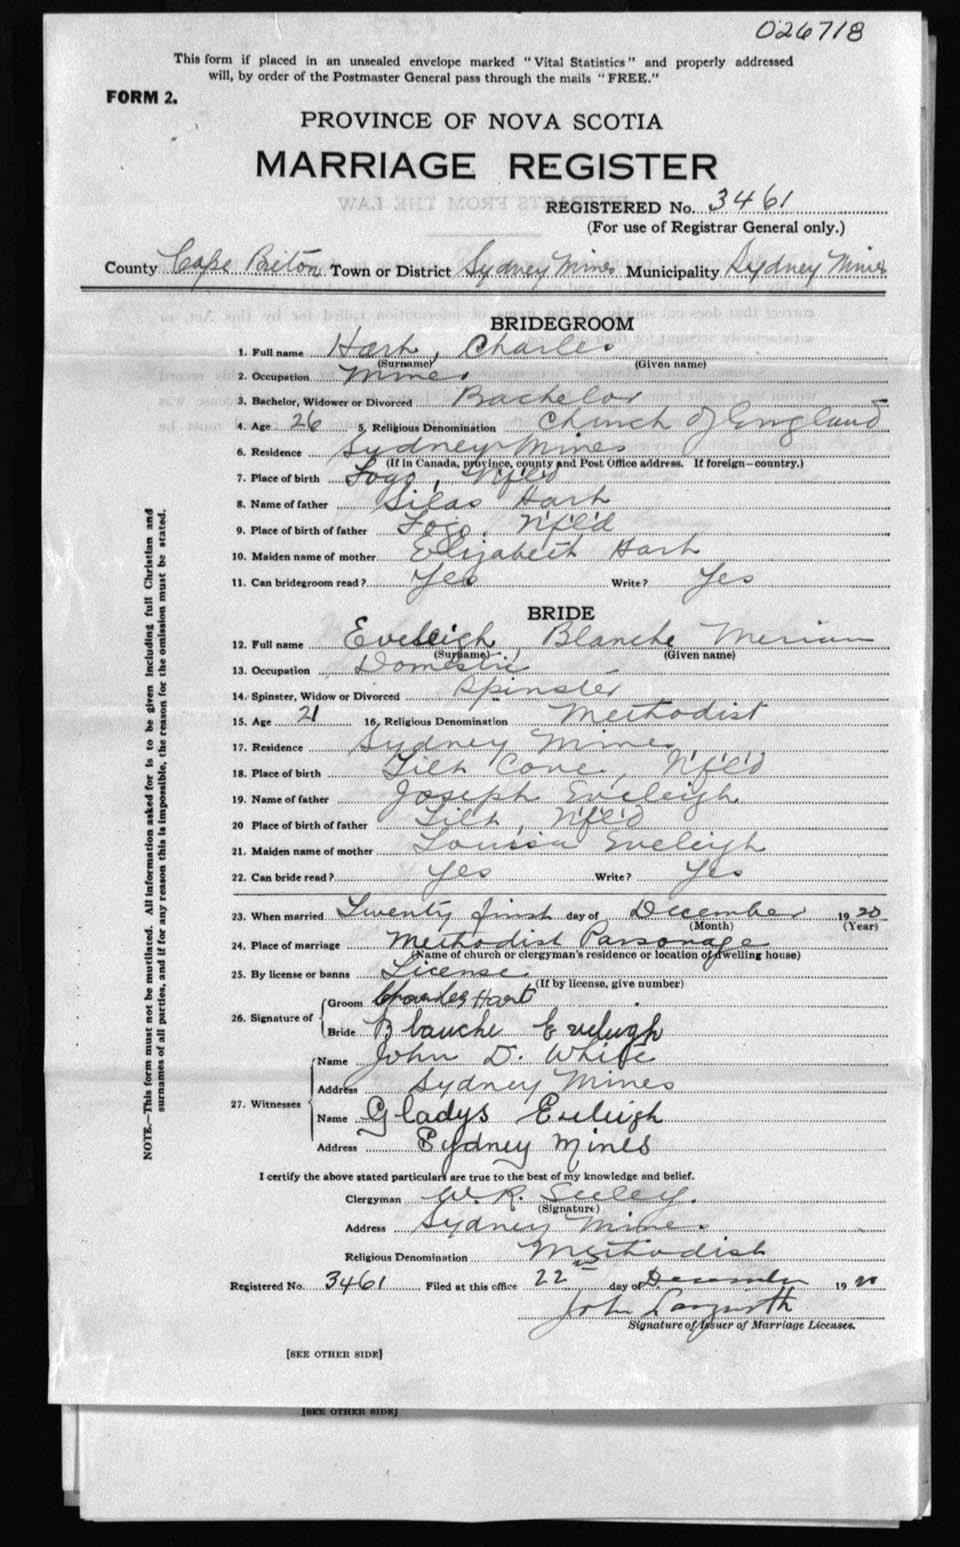 026718
This form if placed in an unsealed envelope marked "Vital Statistics" and properly addressed
will, by order of the Postmaster General pass through the mails "FREE."
FORM 2.
PROVINCE OF NOVA SCOTIA
MARRIAGE REGISTER
REGISTERED No. 3461
(For use of Registrar General only.)
County Cape Breton Town or District Sydney Mines Municipality Sydney Mines
BRIDEGROOM
1. Full name Hart, Charles
(Surname) (Given name)
2. Occupation Miner
3. Bachelor, Widower or Divorced Bachelor
4. Age 26 5. Religious Denomination Church of England
6. Residence Sydney Mines
(If in Canada, province, county and Post Office address. If foreign—country.)
7. Place of birth Fogo, Nfl'd
8. Name of father Silas Hart
9. Place of birth of father Fogo, Nfl'd
10. Maiden name of mother Elizabeth Hart
11. Can bridegroom read? Yes Write? Yes
BRIDE
12. Full name Eveleigh, Blanche Meriam
(Surname) (Given name)
13. Occupation Domestic
14. Spinster, Widow or Divorced Spinster
15. Age 21 16. Religious Denomination Methodist
17. Residence Sydney Mines
18. Place of birth Tilt Cove, Nfl'd
19. Name of father Joseph Eveleigh
20 Place of birth of father Tilt, Nfl'd
21. Maiden name of mother Louisa Eveleigh
22. Can bride read? Yes Write? Yes
23. When married Twenty first day of December 1920
(Month) (Year)
24. Place of marriage Methodist Parsonage
(Name of church or clergyman's residence or location of dwelling house)
25. By license or banns License
(If by license, give number)
26. Signature of
Groom Charles Hart
Bride Blanche Eveleigh
27. Witnesses
Name John D. White
Address Sydney Mines
Name Gladys Eveleigh
Address Sydney Mines
I certify the above stated particulars are true to the best of my knowledge and belief.
Clergyman W. R. Seeley.
(Signature)
Address Sydney Mines
Religious Denomination Methodist
Registered No. 3461 Filed at this office 22nd day of December 1920
John
Signature of Issuer of Marriage Licenses.
[SEE OTHER SIDE]
[SEE OTHER SIDE]
NOTE.—This form must not be mutilated. All information asked for is to be given including full Christian and
surnames of all parties, and if for any reason this is impossible, the reason for the omission must be stated.